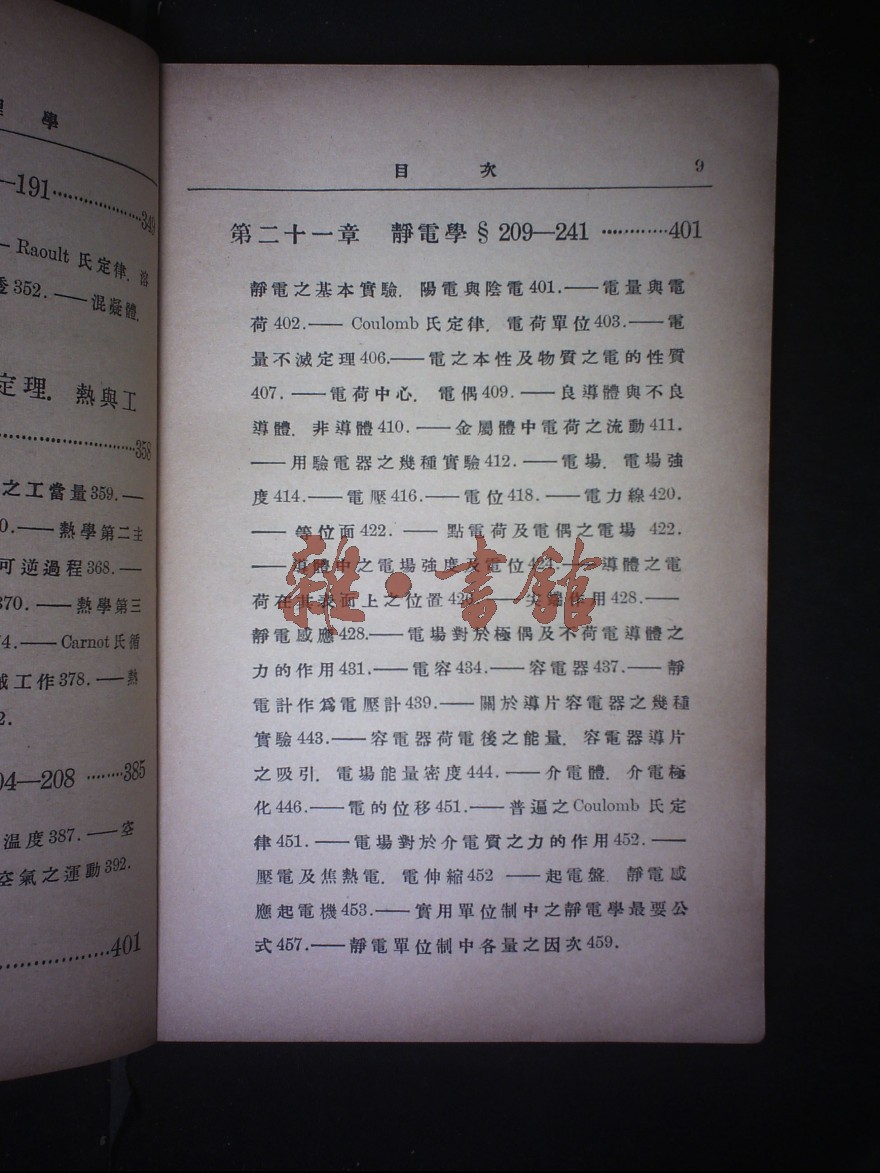 理學
—191··················349
— Raoult 氏定律．溶
透352．——混凝體．
定理．熱與工
··················358
之工當量359．—
0．——熱學第二主
可逆過程368．—
370．——熱學第三
74．——Carnot氏循
械工作378．—熱
2．
04—208 ········385
溫度387．——空
空氣之運動392．
··················401
目次 9
第二十一章 靜電學 § 209—241 ············401
靜電之基本實驗．陽電與陰電401．——電量與電
荷402．—— Coulomb 氏定律．電荷單位403．——電
量不滅定理406．——電之本性及物質之電的性質
407．——電荷中心．電偶409．——良導體與不良
導體．非導體410．——金屬體中電荷之流動411．
——用驗電器之幾種實驗412．——電場．電場強
度414．——電壓416．——電位418．——電力線420．
——等位面422．——點電荷及電偶之電場 422．
——導體中之電場強度及電位424．——導體之電
荷在其表面上之位置426．——尖端作用428．——
靜電感應428．——電場對於極偶及不荷電導體之
力的作用431．——電容434．——容電器437．——靜
電計作爲電壓計439．——關於導片容電器之幾種
實驗443．——容電器荷電後之能量．容電器導片
之吸引．電場能量密度444．——介電體．介電極
化446．——電的位移451．——普遍之Coulomb 氏定
律451．——電場對於介電質之力的作用452．——
壓電及焦熱電．電伸縮452 ——起電盤．靜電感
應起電機453．——實用單位制中之靜電學最要公
式457．——靜電單位制中各量之因次459．
雜·書館